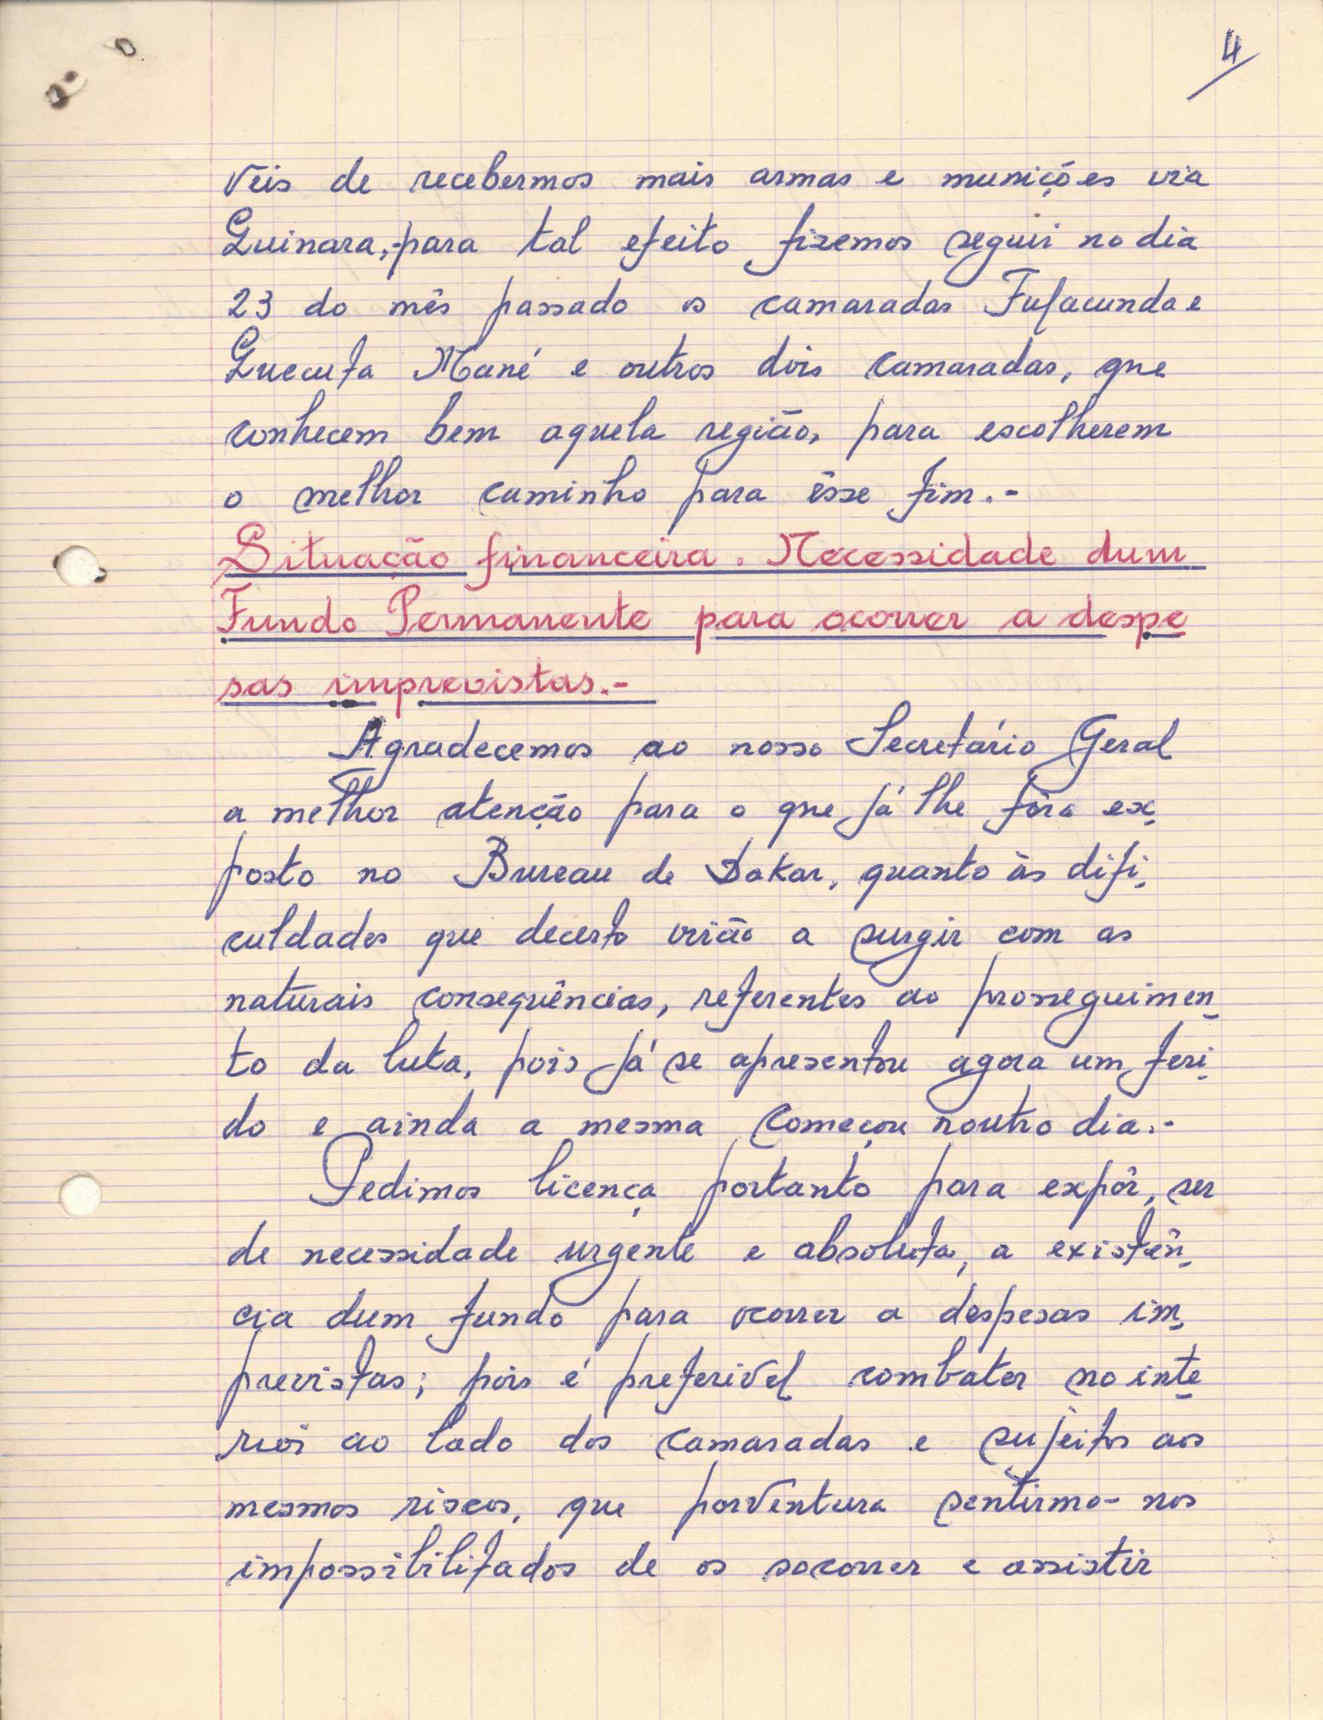 4
veis de recebermos mais armas e munições via
Guinara,-para tal efeito fizemos seguir no dia
23 do mês passado os camaradas Fulacunda e
Quecuta Mané e outros dois camaradas, que
conhecem bem aquela região, para escolherem
o melhor caminho para êsse fim.-
Situação financeira. Necessidade dum
Fundo Permanente para ocorrer a despe
sas imprevistas.-
Agradecemos ao nosso Secretário Geral
a melhor atenção para o que já lhe fôra ex-
posto no Bureau de Dakar, quanto às difi-
culdades que decerto virão a surgir com as
naturais consequências, referentes ao prosseguimen-
to da luta, pois já se apresentou agora um feri-
do e ainda a mesma começou noutro dia.-
Pedimos licença portanto para expôr, ser
de necessidade urgente e absoluta, a existên-
cia dum fundo para ocorrer a despesas im-
previstas; pois é preferivel combater no inte-
rior ao lado dos camaradas e sujeitos aos
mesmos riscos, que porventura sentirmo-nos
impossibilitados de os socorrer e assistir